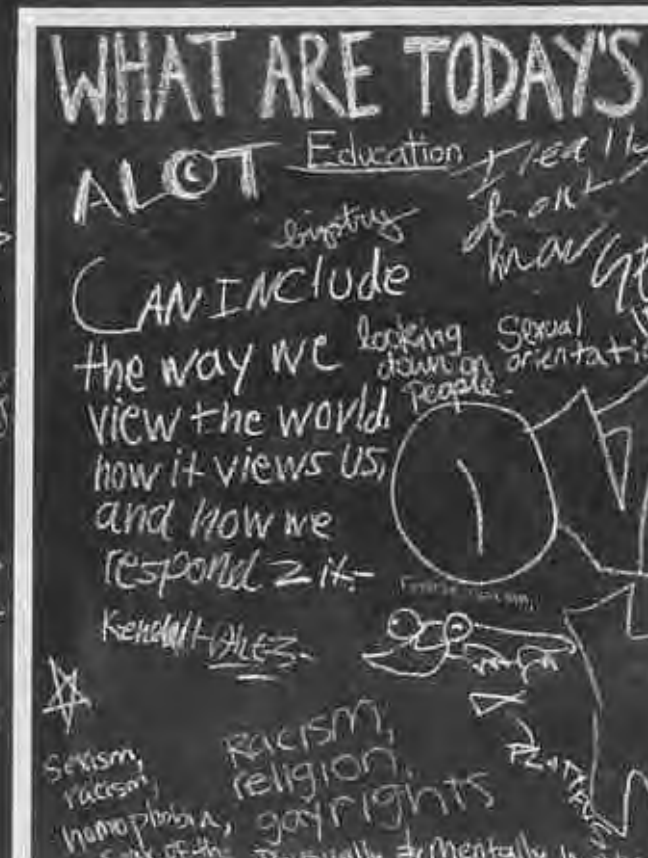 WHAT ARE TODAY'S
ALOT
Education
I really
don't
know
bigotry
CAN INClude
the way we
view the world,
how it views us,
and how we
respond 2 it-
looking
down on
People.
Sexual
Sexism,
racism,
homophobia,
RACISM,
religion,
gay rights
Mentally